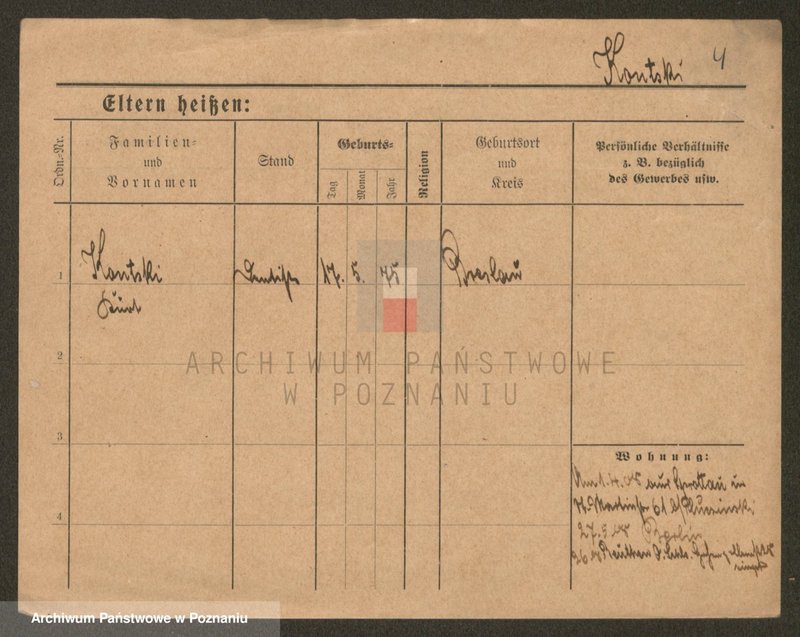 Kontski 4
Eltern heißen:
Ordn.-Nr.
Familien-
und
Vornamen
Stand
Geburts-
Tag
Monat
Jahr
Religion
Geburtsort
und
Kreis
Persönliche Verhältnisse
z. B. bezüglich
des Gewerbes usw.
1
Kontski
Kurt
17. 5. 75
Breslau
2
ARCHIWUM PAŃSTWOWE
W POZNANIU
3
4
Wohnung:
Am 1.4.08 aus in
St. Martinstr 61
27.5.08 Berlin
Archiwum Państwowe w Poznaniu